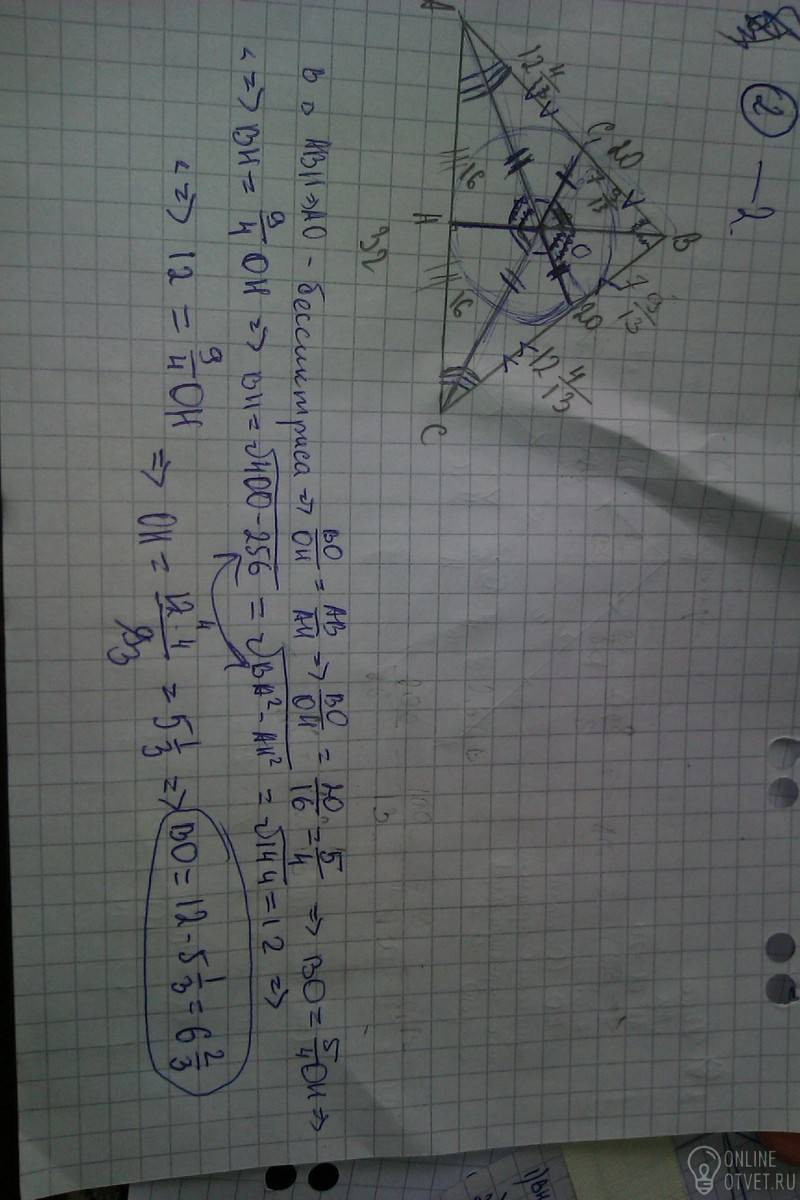 ② – 2
A
B
C
H
O
C₁
12 4/13
20
7 9/13
7 9/13
20
12 4/13
16
16
32
В △ ABH ⇒ AO - бессиктриса ⇒ BO/OH = AB/AH ⇒ BO/OH = 20/16 = 5/4 ⇒ BO = 5/4 OH ⇒
<=> BH = 9/4 OH ⇒ BH = √400-256 = √BA²-AH² = √144 = 12 ⇒
<=> 12 = 9/4 OH ⇒ OH = 12·4/9 = 5 1/3 ⇒ BO = 12 - 5 1/3 = 6 2/3
ONLINE
OTVET.RU